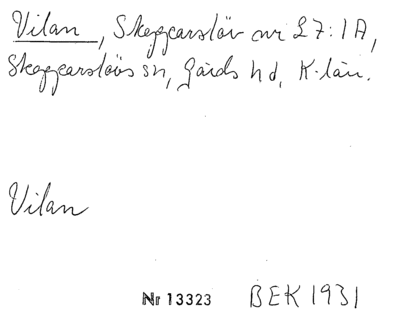 Vilan, Skepparslöv nr 27:1A,
Skepparslövs sn, Gärds hd, K-län.
Vilan
Nr 13323 BEK 1931